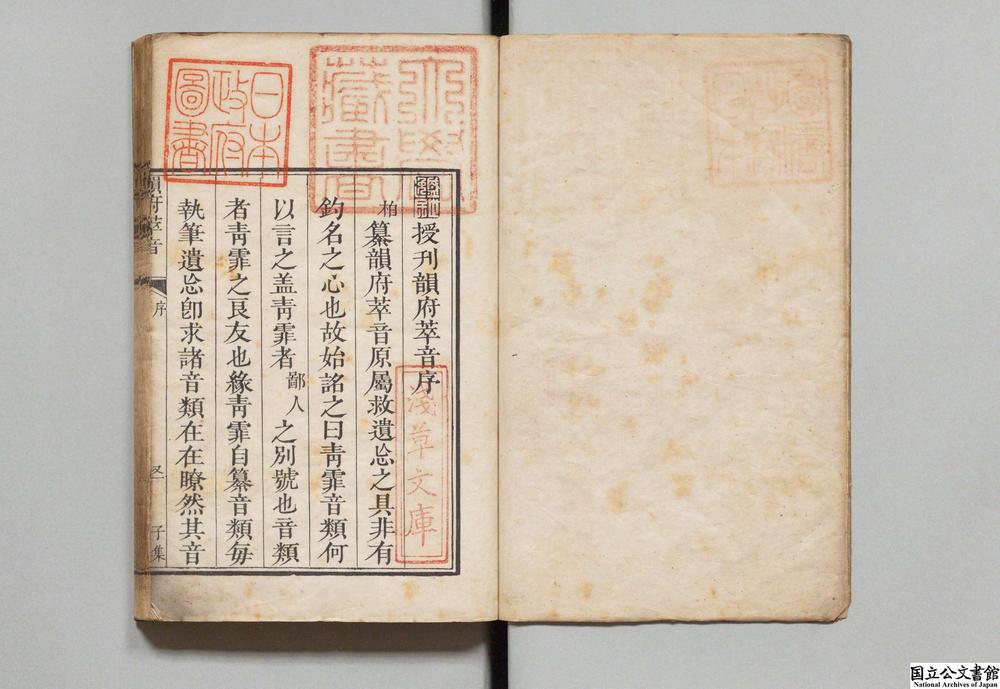 授刋韻府萃音序
柏纂韻府萃音原屬救遺忘之具非有
釣名之心也故始詺之曰靑霏音類何
以言之盖靑霏者鄙人之別號也音類
者靑霏之良友也緣靑霏自纂音類每
執筆遺忘卽求諸音類在在瞭然其音
韻府萃音
序
子集
日本
政府
圖書
大學
藏書
淺草文庫
国立公文書館
National Archives of Japan